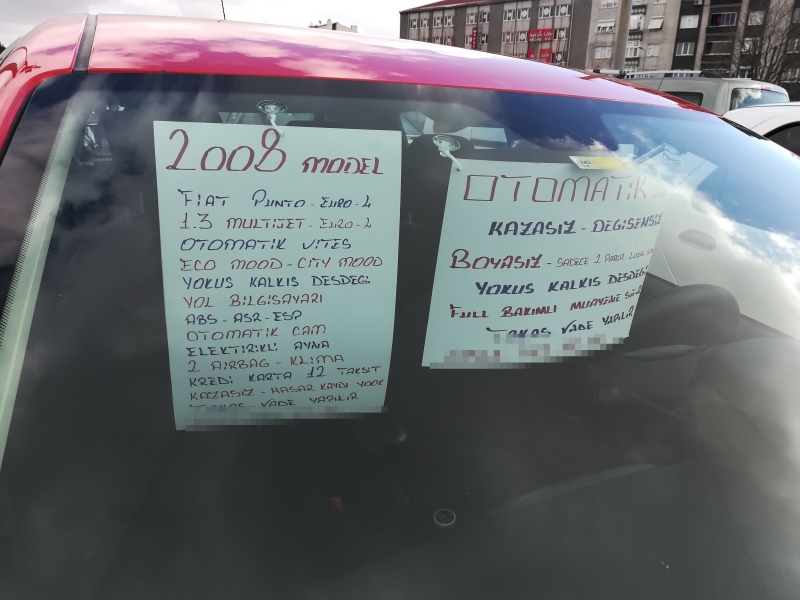 2008 MODEL
FIAT PUNTO - EURO - 4
1.3 MULTIJET - EURO - 4
OTOMATİK VİTES
ECO MOOD - CİTY MOOD
YOKUS KALKIS DESDEGİ
YOL BİLGİSAYARI
ABS - ASR - ESP
OTOMATİK CAM
ELEKTİRİKLİ AYNA
2 AİRBAG - KLİMA
KREDİ KARTA 12 TAKSİT
KAZASIZ - HASAR KAYDI YOOK
TAKAS - VADE YAPILIR
OTOMATİK
KAZASIZ - DEGISENSIZ
BOYASIZ - SADECE 2 PARCA
YOKUS KALKIS DESDEGİ
FULL BAKIMLI MUAYENE
TAKAS VADE YAPILIR